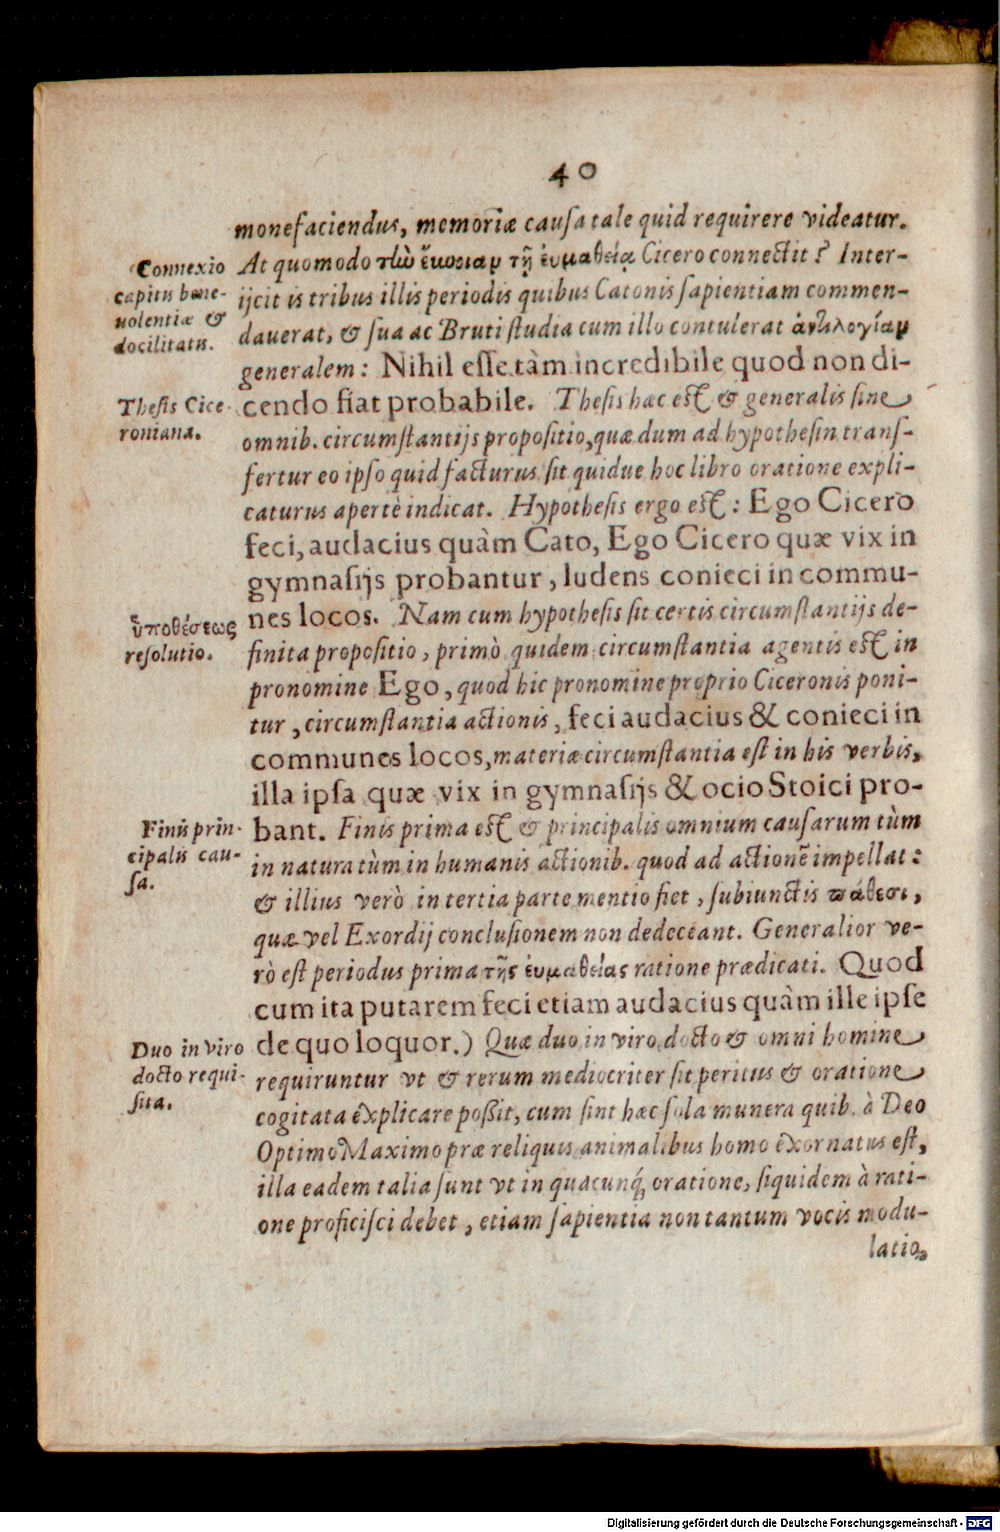 40
monefaciendus, memoriæ causa tale quid requirere videatur.
Connexio
capitis bene-
uolentiæ &
docilitatis.
At quomodo τὼ ἔυνοιαν τῇ ἐυμαθείᾳ Cicero connectit? Inter-
ijcit is tribus illis periodis quibus Catonis sapientiam commen-
dauerat, & sua ac Bruti studia cum illo contulerat ἀντιλογίαν
generalem: Nihil esse tàm incredibile quod non di-
Thesis Cice-
roniana.
cendo fiat probabile. Thesis hæc est & generalis sine
omnib. circumstantijs propositio, quæ dum ad hypothesin trans-
fertur eo ipso quid facturus sit quidue hoc libro oratione expli-
caturus apertè indicat. Hypothesis ergo est: Ego Cicero
feci, audacius quàm Cato, Ego Cicero quæ vix in
gymnasijs probantur, ludens conieci in commu-
ὑποθέσεως
resolutio.
nes locos. Nam cum hypothesis sit certis circumstantijs de-
finita propositio, primò quidem circumstantia agentis est in
pronomine Ego, quod hic pronomine proprio Ciceronis poni-
tur, circumstantia actionis, feci audacius & conieci in
communes locos, materiæ circumstantia est in his verbis,
illa ipsa quæ vix in gymnasijs & ocio Stoici pro-
Finis prin-
cipalis cau-
sa.
bant. Finis prima est & principalis omnium causarum tùm
in natura tùm in humanis actionib. quod ad actionē impellat:
& illius verò in tertia parte mentio fiet, subiunctis πάθεσι,
quæ vel Exordij conclusionem non dedeceant. Generalior ve-
rò est periodus prima τῆς ἐυμαθείας ratione prædicati. Quod
cum ita putarem feci etiam audacius quàm ille ipse
Duo in viro
docto requi-
sita.
de quo loquor.) Quæ duo in viro docto & omni homine
requiruntur vt & rerum mediocriter sit peritus & oratione
cogitata explicare poßit, cum sint hæc sola munera quib. à Deo
Optimo Maximo præ reliquis animalibus homo exornatus est,
illa eadem talia sunt vt in quacunq; oratione, siquidem à rati-
one proficisci debet, etiam sapientia non tantum vocis modu-
latio
Digitalisierung gefördert durch die Deutsche Forschungsgemeinschaft - DFG